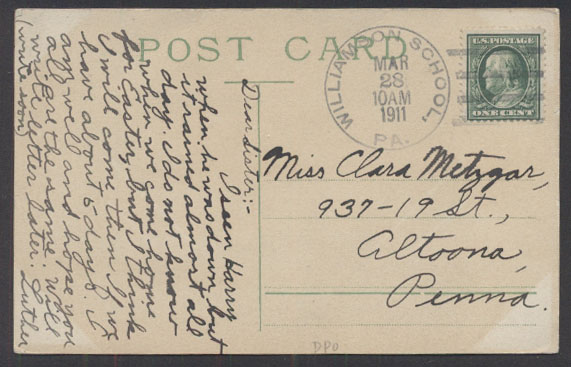 POST CARD
WILLIAMSON SCHOOL,
PA.
MAR
28
10AM
1911
U.S. POSTAGE
ONE CENT
Dear Sister:-
I seen Harry
when he was down but
it rained almost all
day. I do not know
when we come home
for Easter, but I think
I will come then if we
have about 6 days. I
am well and hope you
all are the same. Will
write letter later. Luther
(write soon)
Miss Clara Metzgar,
937-19 St.,
Altoona,
Penna.
DPO